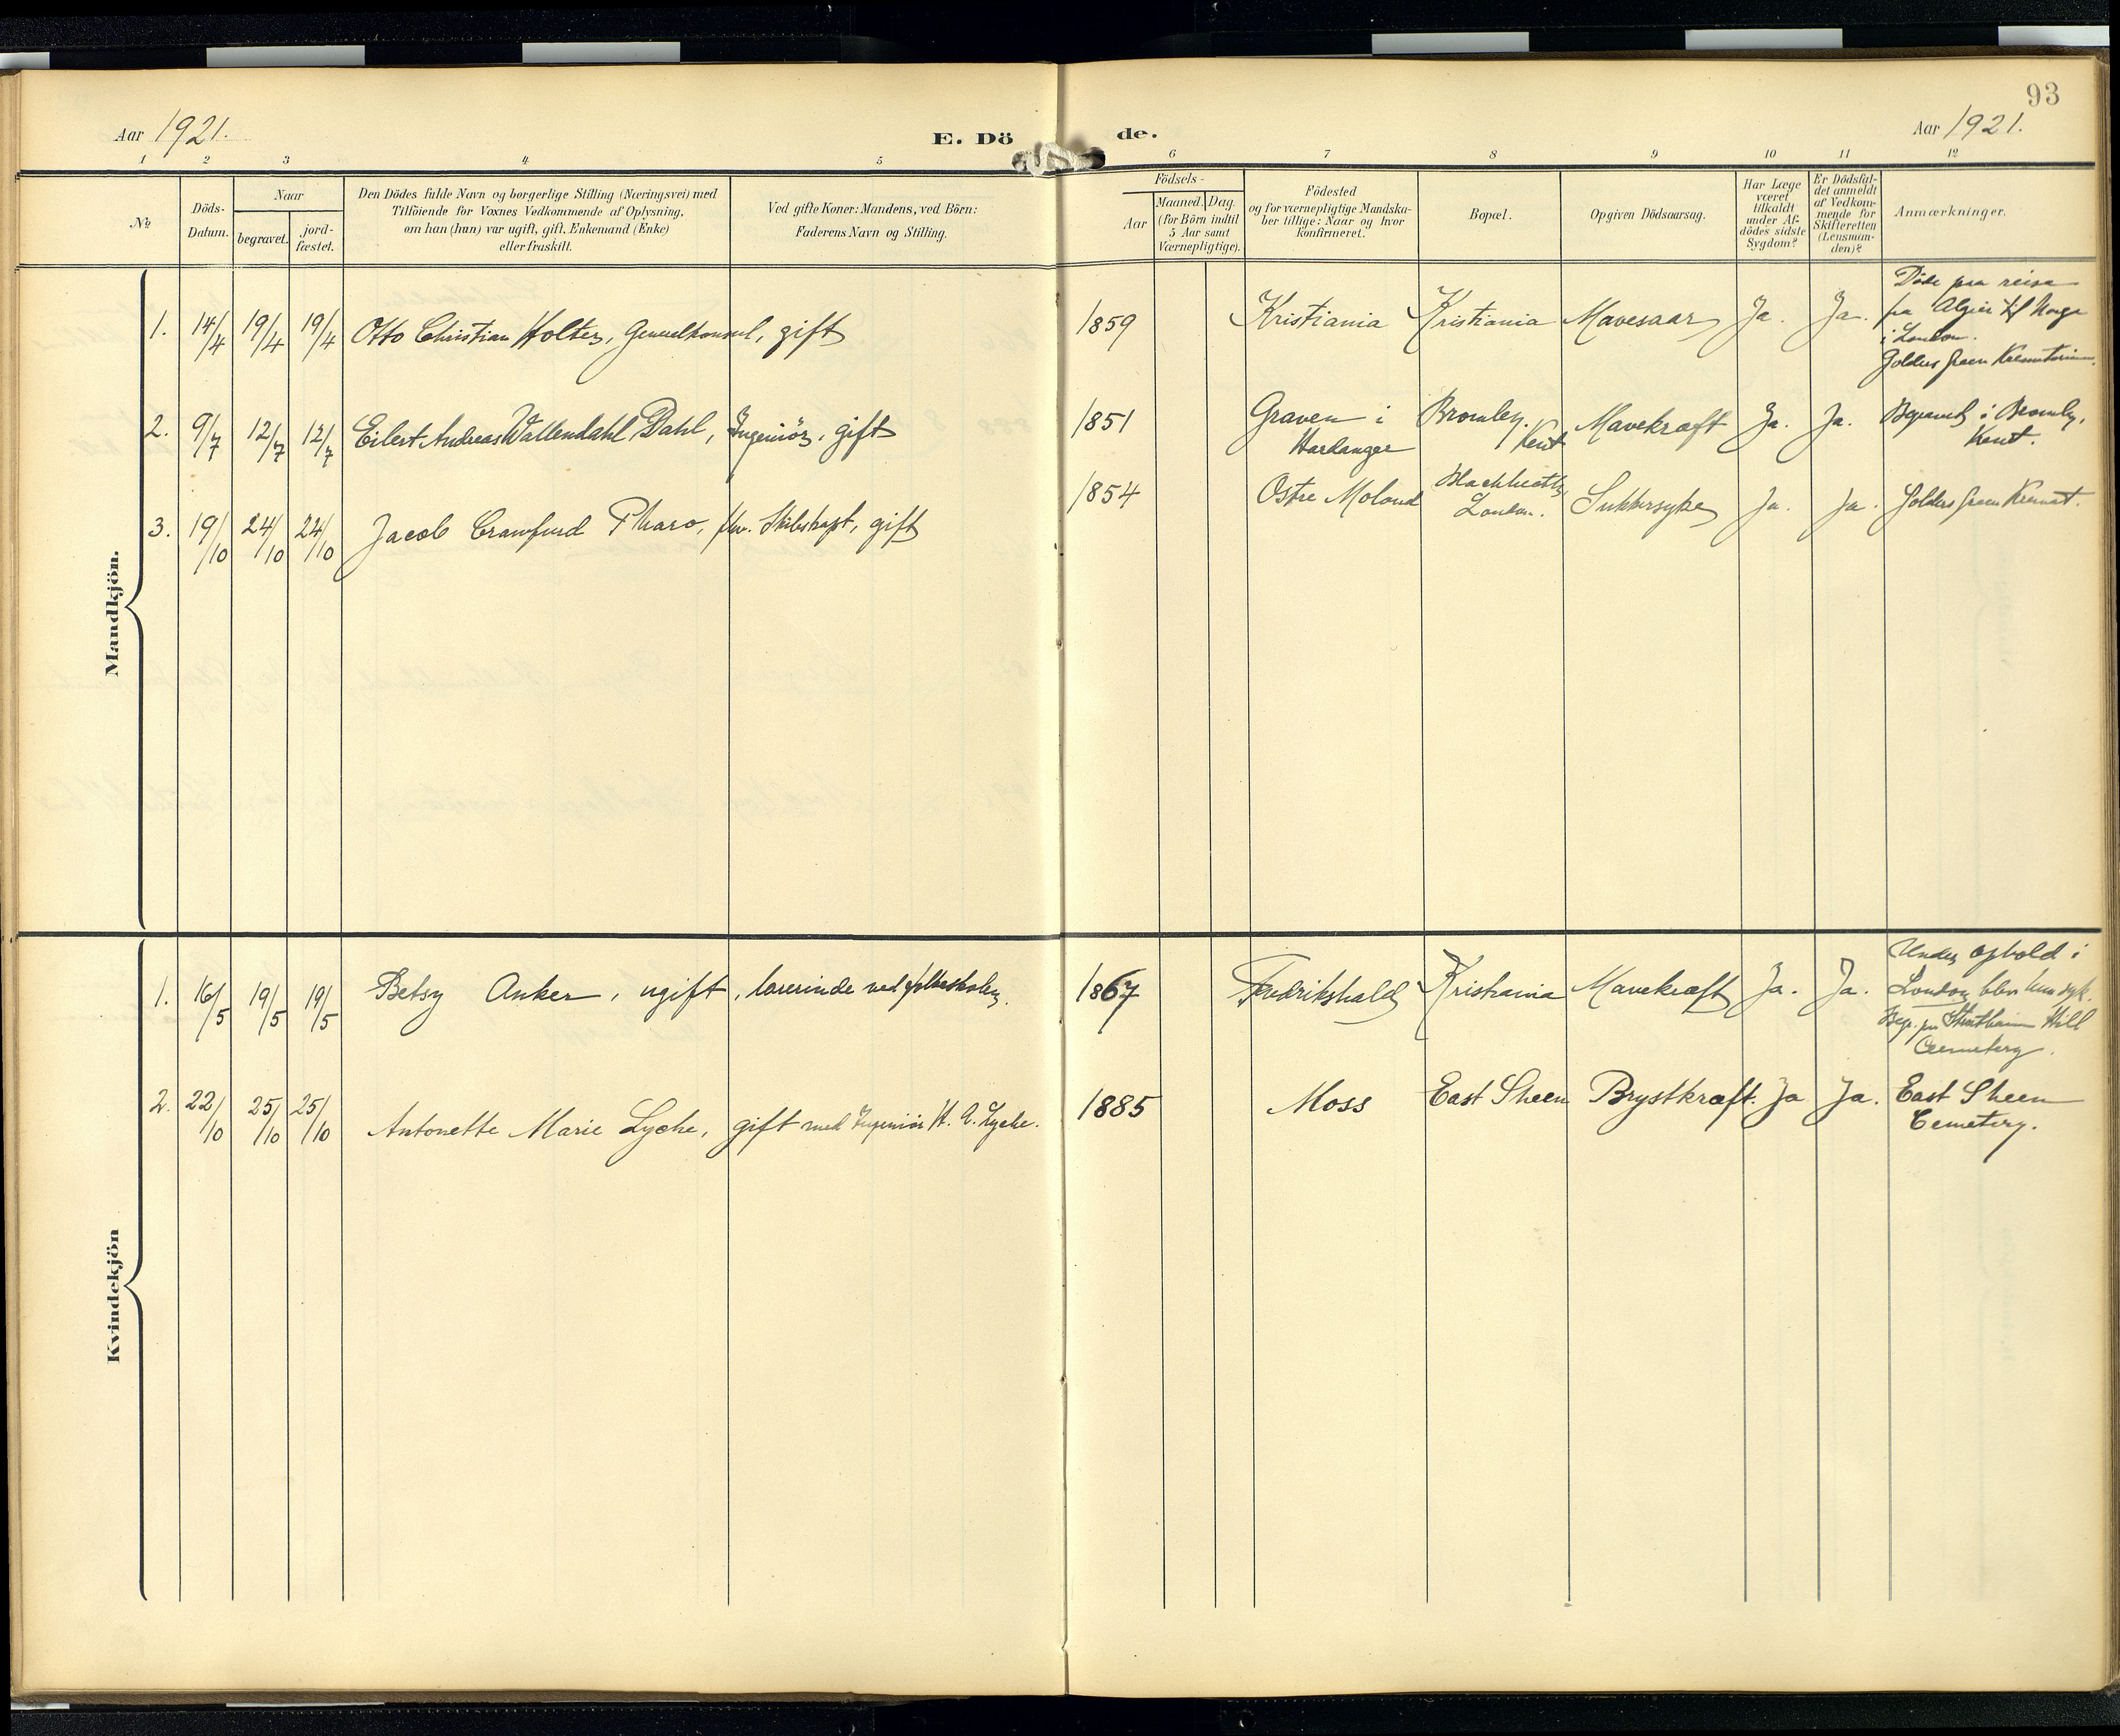 93
Aar 1921.
E. Dö de.
Aar 1921.
1 2 3 4 5 6 7 8 9 10 11 12
No
Döds-
Datum.
Naar
begravet.
jord-
fæstet.
Den Dödes fulde Navn og borgerlige Stilling (Næringsvei) med
Tilföiende for Voxnes Vedkommende af Oplysning,
om han (hun) var ugift, gift, Enkemand (Enke)
eller fraskilt.
Ved gifte Koner: Mandens, ved Börn:
Faderens Navn og Stilling.
Födsels-
Aar
Maaned. Dag.
(for Börn indtil
5 Aar samt
Værnepligtige).
Födested
og for værnepligtige Mandska-
ber tillige: Naar og hvor
konfirmeret.
Bopæl.
Opgiven Dödsaarsag.
Har Læge
været
tilkaldt
under Af-
dödes sidste
Sygdom?
Er Dödsfal-
det anmeldt
af Vedkom-
mende for
Skifteretten
(Lensman-
den)?
Anmærkninger.
Mandkjön.
1. 14/4 19/4 19/4 Otto Christian Holter, Generalkonsul, gift 1859 Kristiania Kristiania Mavesaar Ja. Ja.
Döde paa reise
fra Algier til Norge
i London.
Golders Green Krematorium.
2. 9/7 12/7 12/7 Eilert Andreas Wallendahl Dahl, Ingeniör, gift 1851 Graven i
Hardanger
Bromley.
Kent
Mavekræft Ja. Ja.
Begravet i Bromley,
Kent.
3. 19/10 24/10 24/10 Jacob Crawfurd Pharo, fhv. Skibskapt, gift 1854 Östre Moland
Blackheath
London.
Sukkersyke Ja. Ja. Golders Green Kremat.
Kvindekjön
1. 16/5 19/5 19/5 Betsy Anker, ugift, lærerinde ved folkeskolen. 1867 Fredrikshald Kristiania Mavekræft Ja. Ja.
Under ophold i
London blev hun syk.
Begr. paa Streatham Hill
Cemetery.
2. 22/10 25/10 25/10 Antonette Marie Lyche, gift med Ingeniör H. A. Lyche. 1885 Moss East Sheen Brystkræft. Ja Ja.
East Sheen
Cemetery.